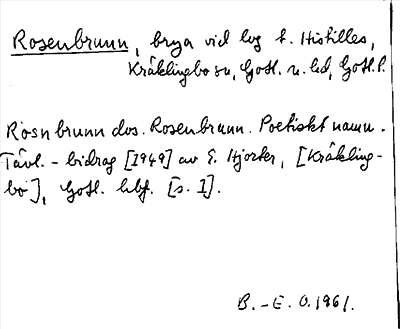 Rosenbrunn, brya vid lvg t. Histilles,
Kräklingbo sn, Gotl. n. hd, Gotl. l.
Rosnbrunn dvs. Rosenbrunn. Poetiskt namn.
Tävl.-bidrag [1949] av E. Hjorter, [Kräkling-
bo], Gotl. hbf. [s. 1].
B.-E. O. 1961.